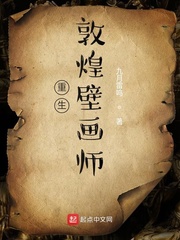 敦煌壁画师
重生
著
起点中文网